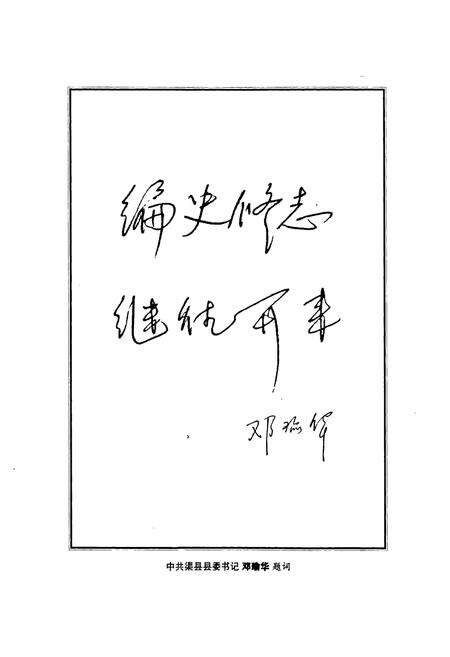 编史修志
继往开来
邓瑜华
中共渠县县委书记 邓瑜华 题词